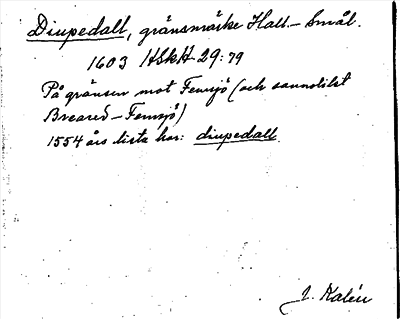 Diupedall, gränsmärke Hall.–Smål.
1603 HSkH 29:79
På gränsen mot Femsjö (och sannolikt
Breared–Femsjö)
1554 års lista har: diupedall
J. Kalén